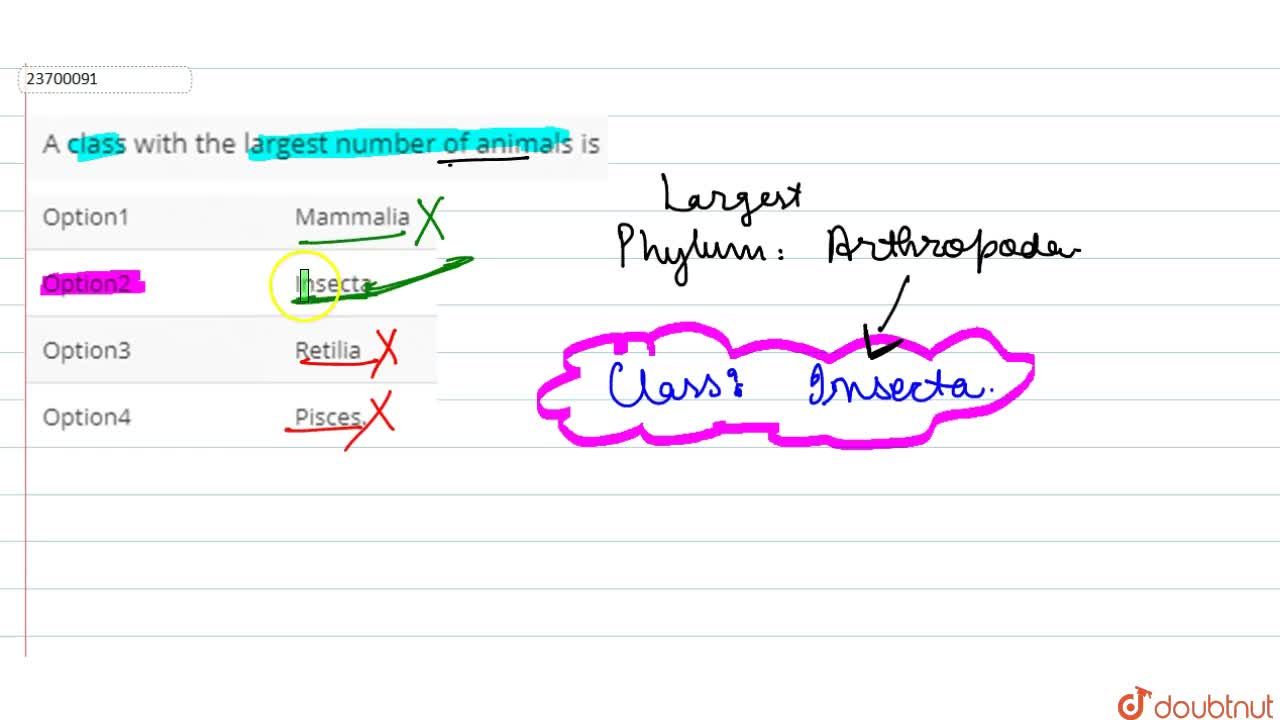 23700091
A class with the largest number of animals is
Option1 Mammalia X
Option2 Insecta
Option3 Retilia X
Option4 Pisces. X
Largest
Phylum: Arthropoda
Class: Insecta.
doubtnut